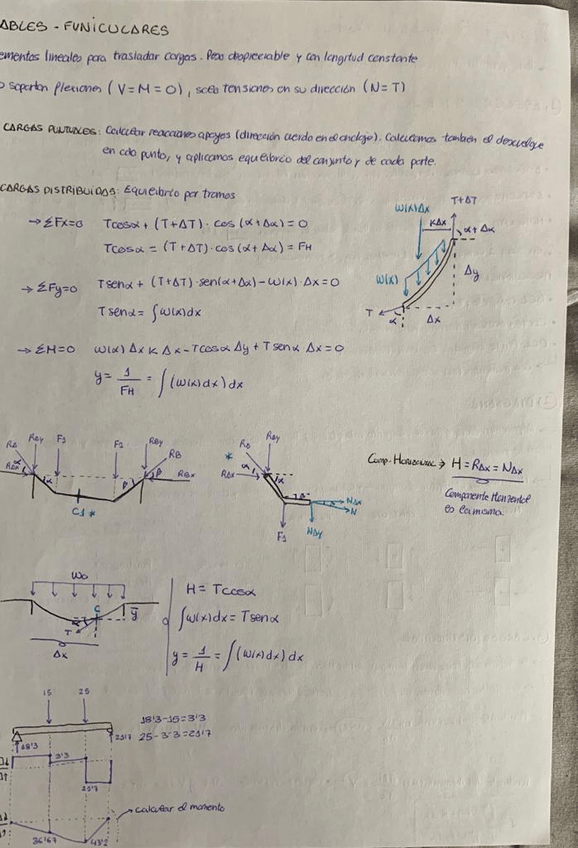 ABLES - FUNICULARES
ementos lineales para trasladar cargas. Peso despreciable y con longitud constante
o soportan flexiones (V=M=0), solo tensiones en su dirección (N=T)
CARGAS PUNTUALES: Calcular reacciones apoyos (dirección cuerda en el anclaje). Calculamos también el descuelgue
en cada punto, y aplicamos equilibrio del conjunto y de cada parte.
CARGAS DISTRIBUIDAS: Equilibrio por tramos
→ ΣFx=0 Tcosα + (T+ΔT)·cos(α+Δα)=0
Tcosα = (T+ΔT)·cos(α+Δα) = FH
→ ΣFy=0 Tsenα + (T+ΔT)·sen(α+Δα)-W(x)·Δx=0
Tsenα = ∫W(x)dx
→ ΣM=0 W(x)Δx KΔx - Tcosα Δy + Tsenα Δx=0
y = 1/FH = ∫(W(x)dx)dx
W(x)Δx
T+ΔT
KΔx
α+Δα
W(x)
Δy
T
α
Δx
RA RAy F1 F2 RBy
RB
RAx α β RBx
C1*
* RA RAy
RAx α
NΔx
N
F1 NΔy
Comp. Horizontal → H = RAx = NΔx
Componente Horizontal
es la misma.
W0
C
T α
ȳ
Δx
H = Tcosα
∫W(x)dx = Tsenα
y = 1/H = ∫(W(x)dx)dx
15 25
18'3-15=3'3
25-3'3=21'7
18'3 21'7
3'3
21'7
→ calcular el momento
36'67 43'2